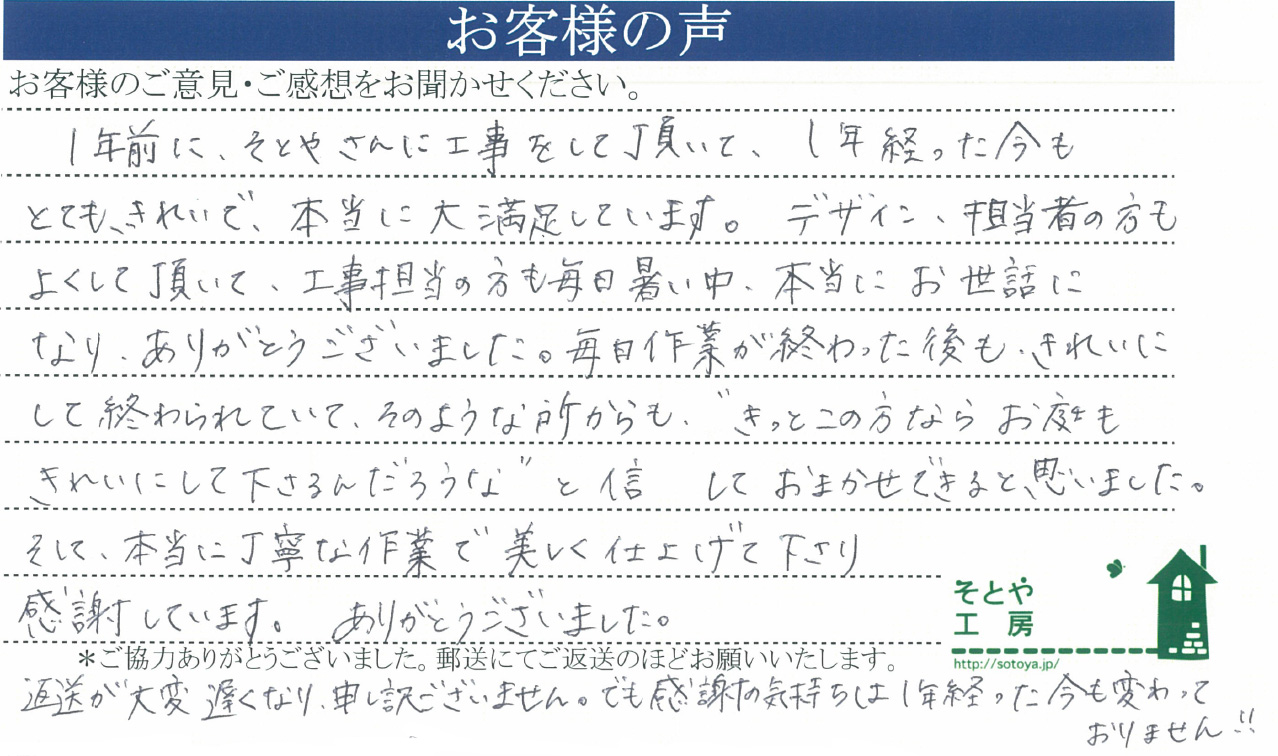 お客様の声
お客様のご意見・ご感想をお聞かせください。
1年前に、そとやさんに工事をして頂いて、1年経った今も
とても、きれいで、本当に大満足しています。デザイン、担当者の方も
よくして頂いて、工事担当の方も毎日暑い中、本当にお世話に
なり、ありがとうございました。毎日作業が終わった後も、きれいに
して終わられていて、そのような所からも、〝きっとこの方ならお庭も
きれいにして下さるんだろうな〟と信 しておまかせできると、思いました。
そして、本当に丁寧な作業で美しく仕上げて下さり
感謝しています。 ありがとうございました。
そとや
工房
http://sotoya.jp/
＊ご協力ありがとうございました。郵送にてご返送のほどお願いいたします。
返送が大変遅くなり、申し訳ございません。でも感謝の気持ちは1年経った今も変わって
おりません!!